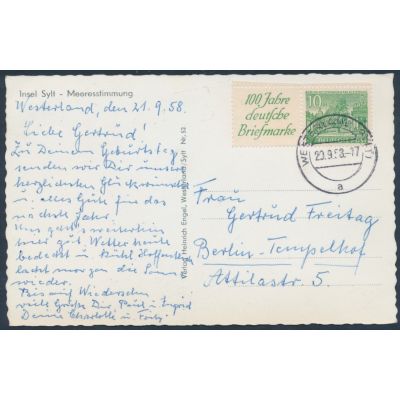 Insel Sylt - Meeresstimmung
Westerland, den 21.9.58.
Liebe Gertrud!
Zu Deinem Geburtstag
senden wir Dir unsere
herzlichsten Glückwünsche
u. alles Gute für das
nächste Jahr.
Uns gehts weiterhin
sehr gut, Wetter heute
bedeckt u. kühl. Hoffentlich
lacht morgen die Sonne
wieder.
Bis auf Wiedersehen
viele Grüße Dir, Paul u. Ingrid
Deine Charlotte u. Fritz.
Verlag Heinrich Engel, Westerland/Sylt Nr. 53
100 Jahre
deutsche
Briefmarke
10
WESTERLAND
20.9.58.-17
a
Frau
Gertrud Freitag
Berlin-Tempelhof
Attilastr. 5.